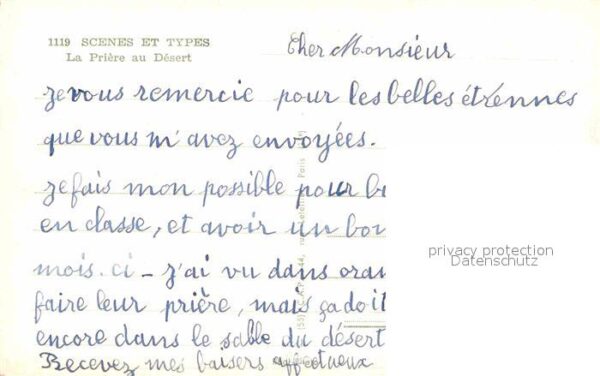 1119 SCENES ET TYPES
La Prière au Désert
Cher Monsieur
je vous remercie pour les belles étrennes
que vous m'avez envoyées.
je fais mon possible pour
en classe, et avoir un
mois-ci - j'ai vu dans
faire leur prière, mais ça doit
encore dans le sable du désert
Recevez mes baisers affectueux
privacy protection
Datenschutz